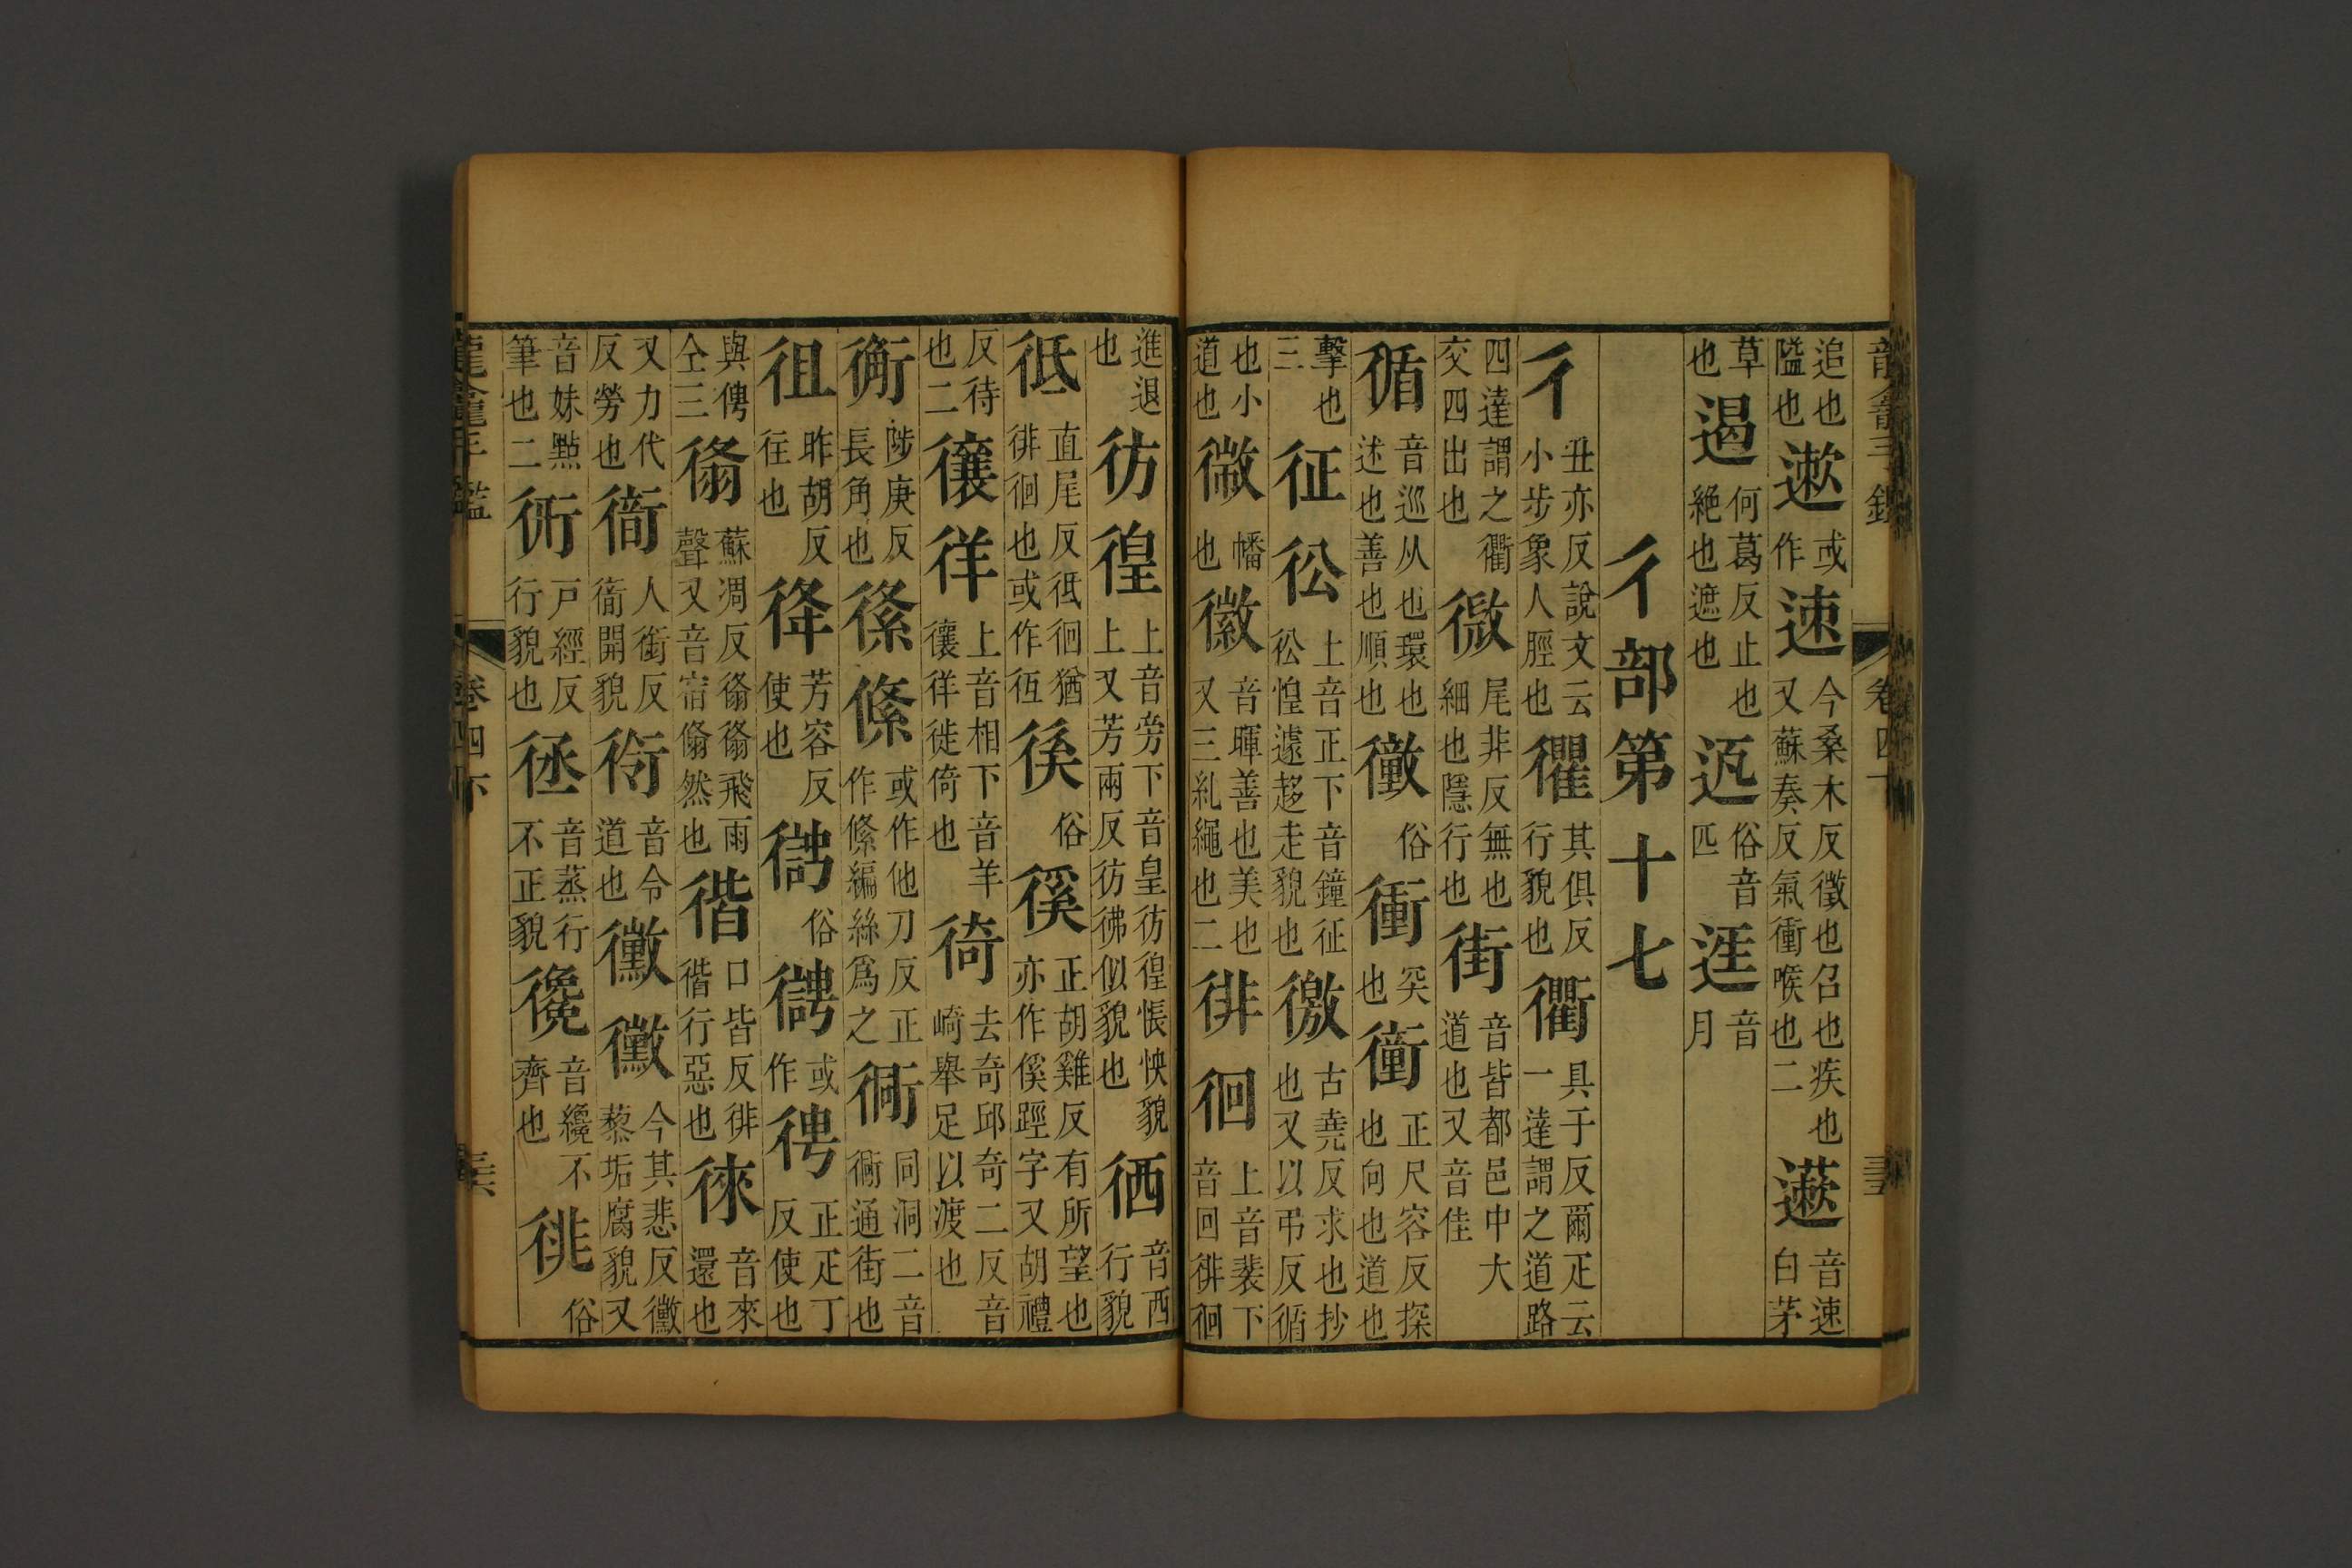 追也隘也遬或作速今桑木反徵也召也疾也又蘇奏反氣衝喉也二藗音速白茅
草也遏何葛反止也絶也遮也𨒪俗音匹𨓱音月
彳部第十七
彳丑亦反說文云小步象人脛也忂其俱反行貌也衢具于反爾疋云一達謂之道路
四達謂之衢交四出也微尾非反無也細也隱行也街音皆都邑中大道也又音佳
循音巡从也環也述也善也順也俗衝突也衝正尺容反探也向也道也
擊也三征彸上音正下音鐘征彸惶遽趍走貌也徼古堯反求也抄也又以弔反循
也小道也幑幡也徽音暉善也美也又三糺繩也二徘徊上音裴下音回徘徊
進退也彷徨上音旁下音皇彷徨悵怏貌上又芳兩反彷彿似貌也徆音西行貌
彽直尾反彽徊猶徘徊也或作徑俗徯正胡雞反有所望也亦作傒蹊字又胡禮
反待也二忀徉上音相下音羊忀徉徙倚也徛去奇邱奇二反音崎舉足以渡也
衡陟庚反長角也絛或作作他刀反正作絛編絲爲之衕同洞二音衕通街也
徂昨胡反往也夆芳容反使也俗或作𢓳正疋丁反使也
與俜仝三翛蘇凋反翛翛飛雨聲又音宿翛然也偕口皆反徘偕行惡也徠音來還也
又力代反勞也衙人銜反衙開貌彾音令道也黴黴今其悲反黴黎垢腐貌又
音妹㸃筆也二戸經反行貌也音蒸行不正貌音纔不齊也俗
卷四下